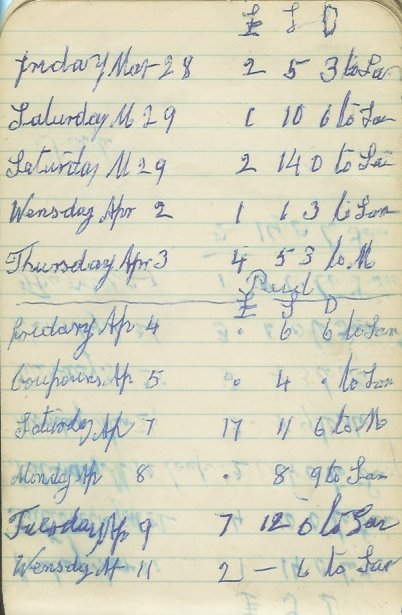 £ S D
Friday Mar 28 2 5 3 to San
Saturday M 29 1 10 6 to San
Saturday M 29 2 14 0 to San
Wensday Apr 2 1 1 3 to San
Thursday Apr 3 4 5 3 to M
Paid
£ S D
Friday Ap 4 . 6 6 to San
Coupons Ap 5 . 4 . to San
Saturday Ap 7 17 11 6 to M
Monday Ap 8 . 8 9 to San
Tuesday Ap 9 7 12 6 to San
Wensdy A 11 2 – to San